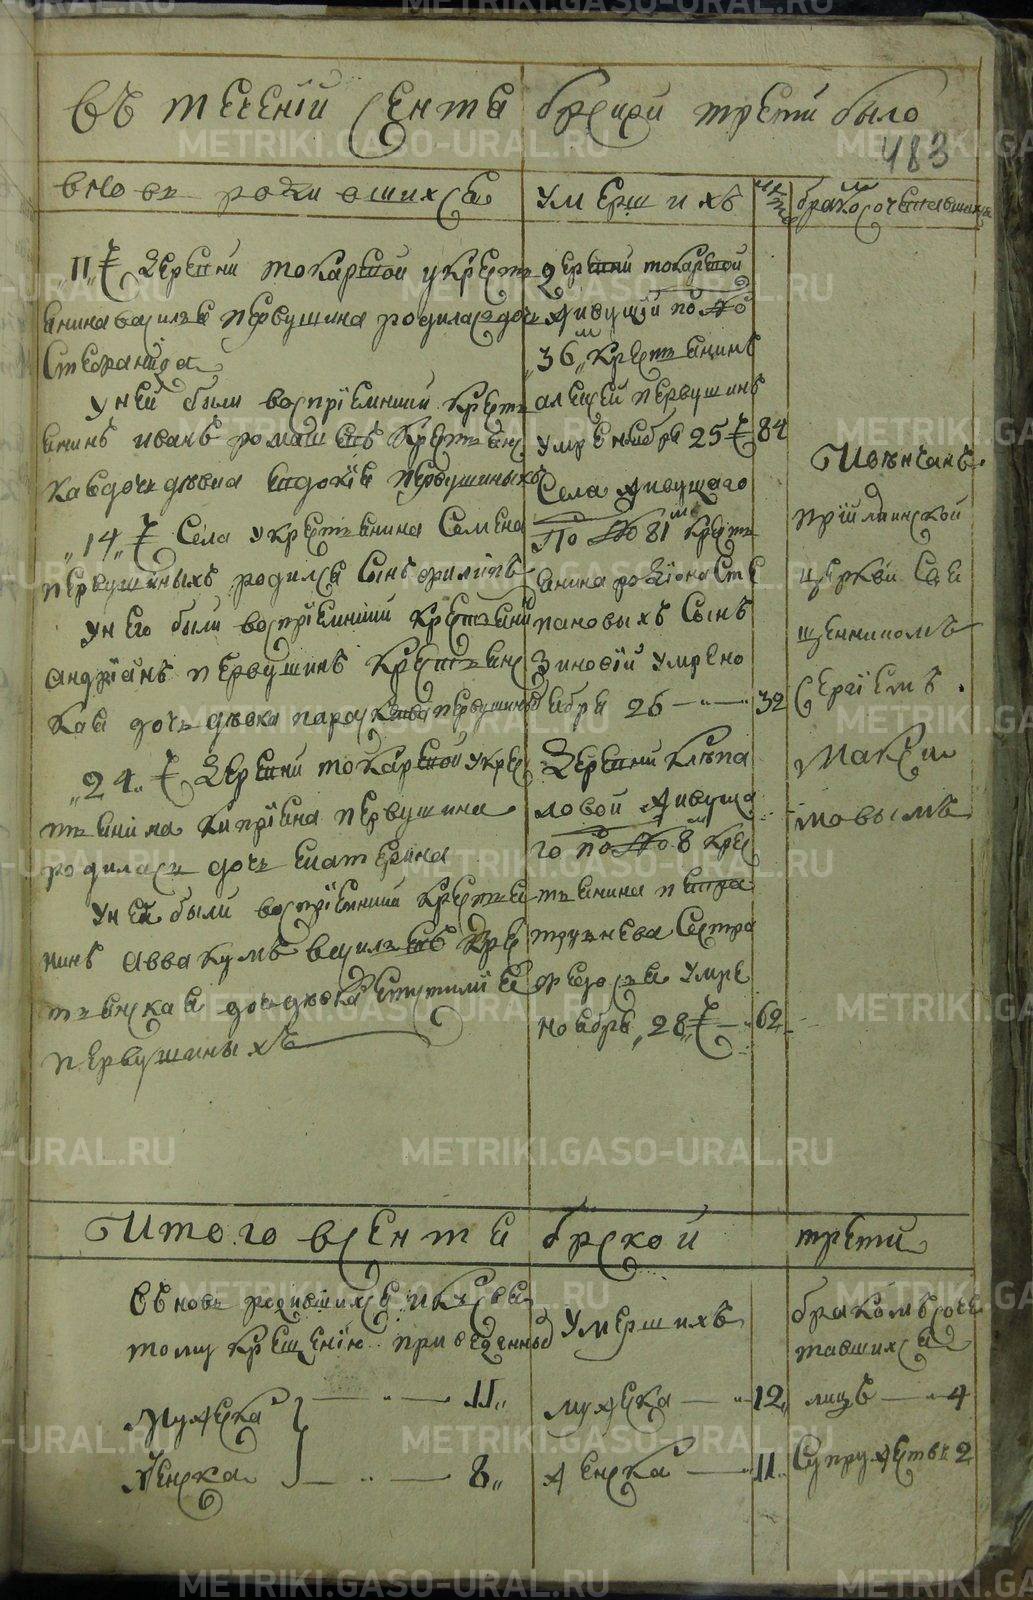 въ течен҄iи сентябрской трети было
483
вновь родившихся
умершихъ
лѣта
бракосочетавшихся
„11„ деревни токаревой у крестья
нина василья первушина родилась дочь
Стефанида
у ней были воспрiемники крестья
нинъ иванъ ромашевъ крестьянс
кая дочь дѣвка евдокiя первушиныхъ
„14„ Села у крестьянина Семена
первушиныхъ родился Сынъ филипъ
у него были воспрiемники крестьянинъ
андрiянъ первушинъ крестьянс
кая дочь дѣвка параскева первушиныхъ
„24„ деревни токаревой у крес
тьянина кипрiяна первушина
родилась дочь екатерина
у ней были воспрiемники крестья
нинъ аввакумъ васильевъ крес
тьянская дочь дѣвка
первушиныхъ
деревни токаревой
живущiй по №
36 крестьянинъ
алексей первушинъ
умре ноября 25 84
Села живущаго
по № 81 крестья
нина родiона Сте
пановыхъ Сынъ
Зиновiй умре но
ября 26 32
деревни клѣпа
ловой живуща
го по № 8 крес
тьянина петра
Сестра
федосья умре
ноября „28„ 62
Повѣнчанъ
церкви Свя
щенникомъ
Сергiемъ
Макси
мовымъ
Итого в сентябрской трети
Вновь родившихся и къ свя
тому крещенiю приведенныхъ
умершихъ
бракомъ соче
тавшихся
Мужеска 11„
мужеска 12„
лицъ 4
Женска 8„
женска 11„
Супружествъ 2
METRIKI.GASO-URAL.RU